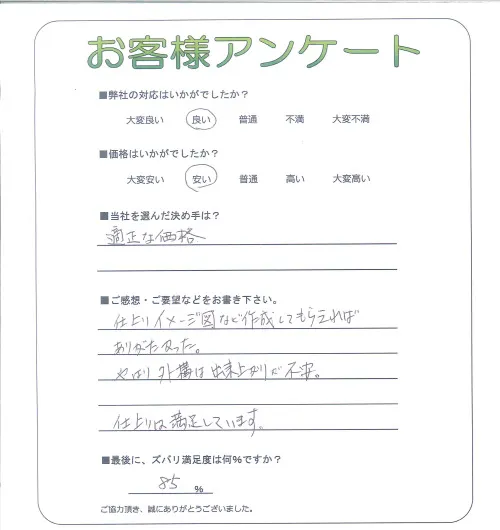 お客様アンケート
■弊社の対応はいかがでしたか？
大変良い 良い 普通 不満 大変不満
■価格はいかがでしたか？
大変安い 安い 普通 高い 大変高い
■当社を選んだ決め手は？
適正な価格
■ご感想・ご要望などをお書き下さい。
仕上りイメージ図など作成してもらえれば
ありがたかった。
やはり外構は出来上がりが不安。
仕上りは満足しています。
■最後に、ズバリ満足度は何％ですか？
85 %
ご協力頂き、誠にありがとうございました。